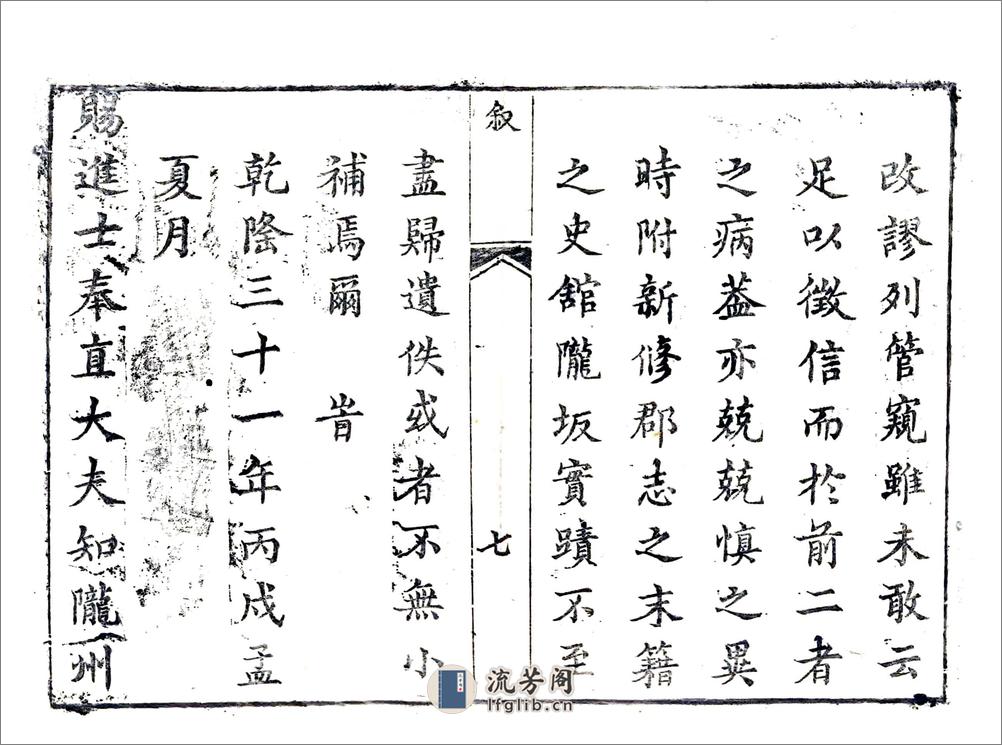 改謬列管窺雖未敢云
足以徵信而於前二者
之病葢亦兢兢慎之異
時附新修郡志之末籍
之史舘隴坂實蹟不至
叙
七
盡歸遺佚或者不無小
補焉爾 旹
乾隆三十一年丙戍孟
夏月
賜進士奉直大夫知隴州
流芳阁
lfglib.cn